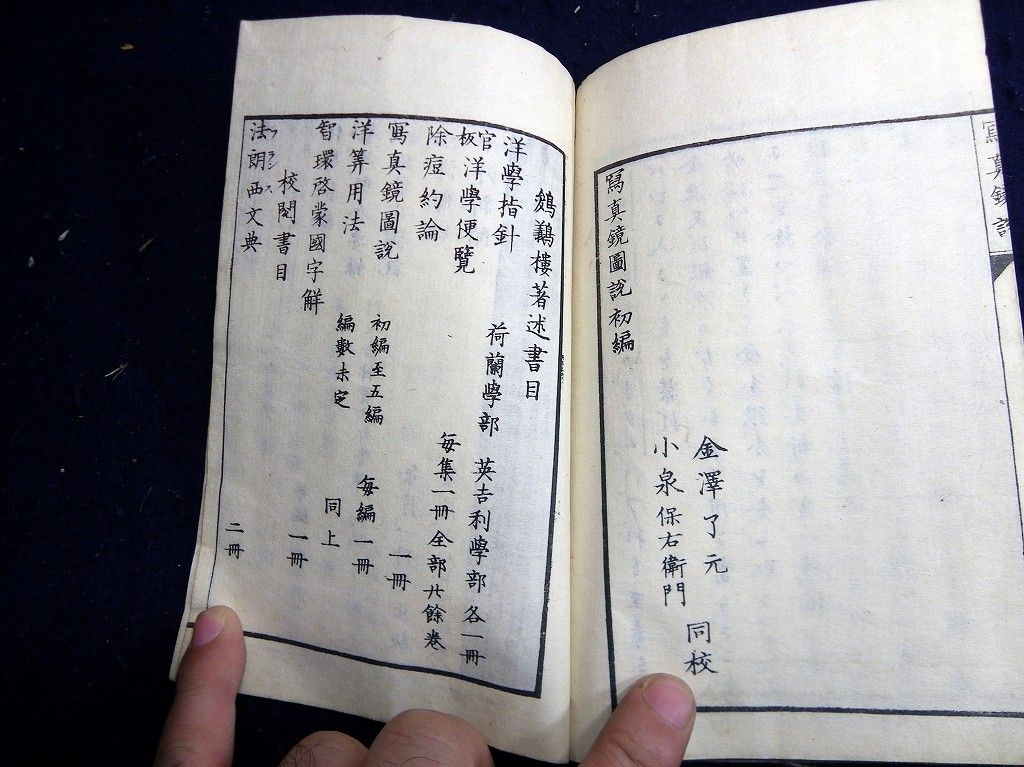 寫真鏡說
寫真鏡圖說初編
金澤了元
小泉保右衛門
同校
鷧鶄樓著述書目
洋學指針 荷蘭學部 英吉利學部 各一冊
官板洋學便覽 每集一冊全部廿餘卷
除痘約論 一冊
寫真鏡圖說 初編至五編 每編一冊
洋筭用法 編數未定 同上
智環啓蒙國字解 一冊
校閱書目
法朗西文典 二冊
フランス